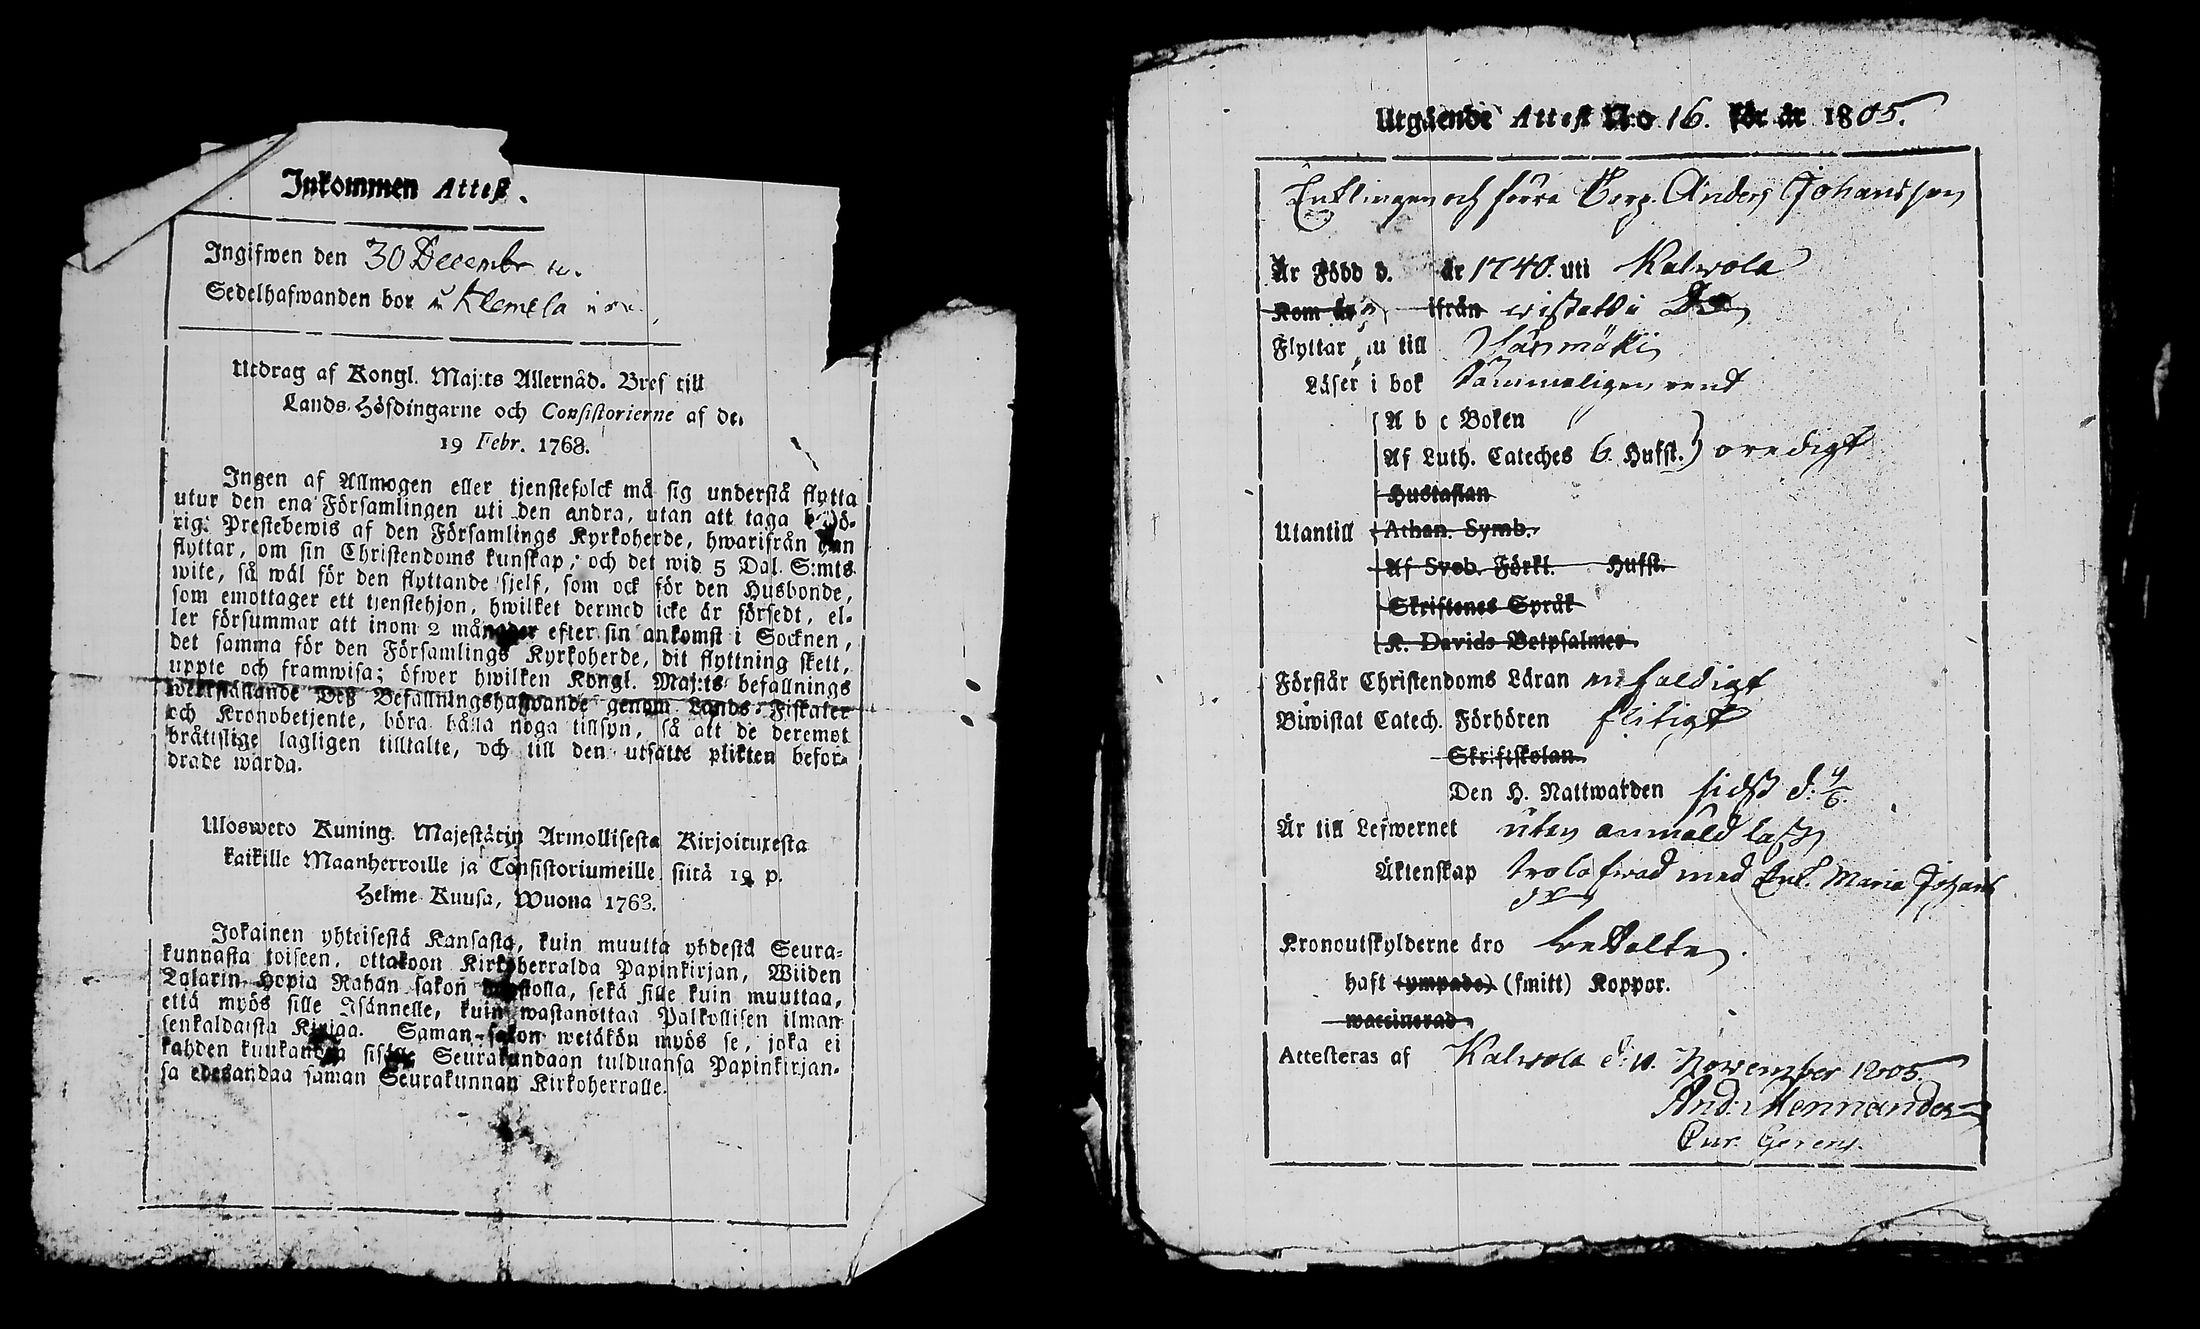 Inkommen Attest.
Ingifwen den 30 Decembr
Sedelhafwanden bor i Klemela
Utdrag af Kongl. Maj:ts Allernåd. Bref till
Lands-Höfdingarne och Consistorierne af den
19 Febr. 1768.
Ingen af Allmogen eller tjenstefolck må sig understå flytta
utur den ena Församlingen uti den andra, utan att taga behö-
rig. Prestebewis af den Församlings Kyrkoherde, hwarifrån han
flyttar, om sin Christendoms kunskap; och det wid 5 Dal. S:mts
wite, så wäl för den flyttande sjelf, som ock för den Husbonde,
som emottager ett tjenstehjon, hwilket dermed icke är försedt, el-
ler försummar att inom 2 månader efter sin ankomst i Socknen,
det samma för den Församlings Kyrkoherde, dit flyttning skett,
uppte och framwisa; öfwer hwilken Kongl. Maj:ts befallnings
werkställande Deß Befallningshafwande genom Lands-Fiskaler
och Kronobetjente, böra hålla noga tillsyn, så att de deremot
bråttslige lagligen tilltalte, och till den utsatte plikten befor-
drade warda.
Uloswето Kuning. Majestätin Armollisesta Kirjoituxesta
kaikille Maanherroille ja Consistoriumeille siitä 19 p.
Helme-Kuusa, Wuona 1768.
Jokainen yhteisestä Kansasta, kuin muutta yhdestä Seura-
kunnasta toiseen, ottakoon Kirkoherralda Papinkirjan, Wiiden
Talarin Hopia Rahan sakon uhaolla, sekä sille kuin muuttaa,
että myös sille Isännelle, kuin wastanottaa Palkollisen ilman
senkaldaista Kirjaa. Saman sakon wetäkön myös se, joka ei
kahden kuukauden sisälle Seurakundaan tulduansa Papinkirjan-
sa edesandaa saman Seurakunnan Kirkoherralle.
Utgående Attest No 16. för år 1805.
Enklingen och förre Anders Johansson
Är Född d. år 1740. uti Kalwola
Kom år ifrån wistatts
Flyttar nu till
Läser i bok tämmeligen rent
A b c Boken
Af Luth. Cateches 6. Hufst. oredigt
Hustaflan
Utantill Athan. Symb.
Af Sveb. Förkl. Hufst.
Skriftenes Språk
K. Davids Botpsalmer
Förstår Christendoms Läran enfaldigt
Biwistat Catech. Förhören flitigt
Skriftskolan
Den H. Nattwarden sidst d. 9/6.
Är till Lefwernet utan anmäld last
Äktenskap trolofwad med Enk. Maria Johans
dr
Kronoutskylderne äro betalta.
haft (ympade) (smitt) Koppor.
waccinerad
Attesteras af Kalwola d. 11. November 1805.
And: Mennander
Cur. Gerens.